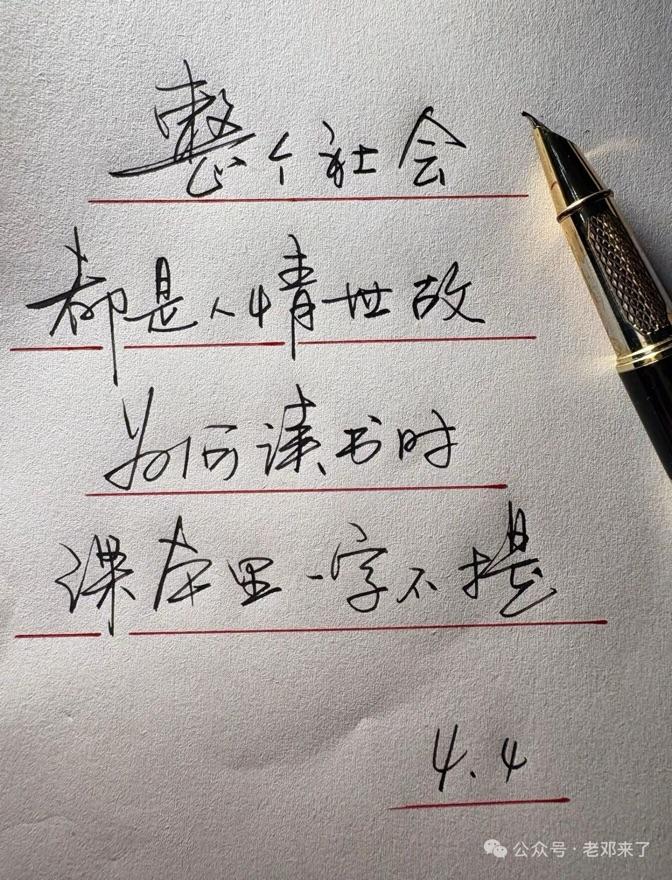 整个社会
都是人情世故
为何读书时
课本里一字不提
4.4
公众号·老邓来了